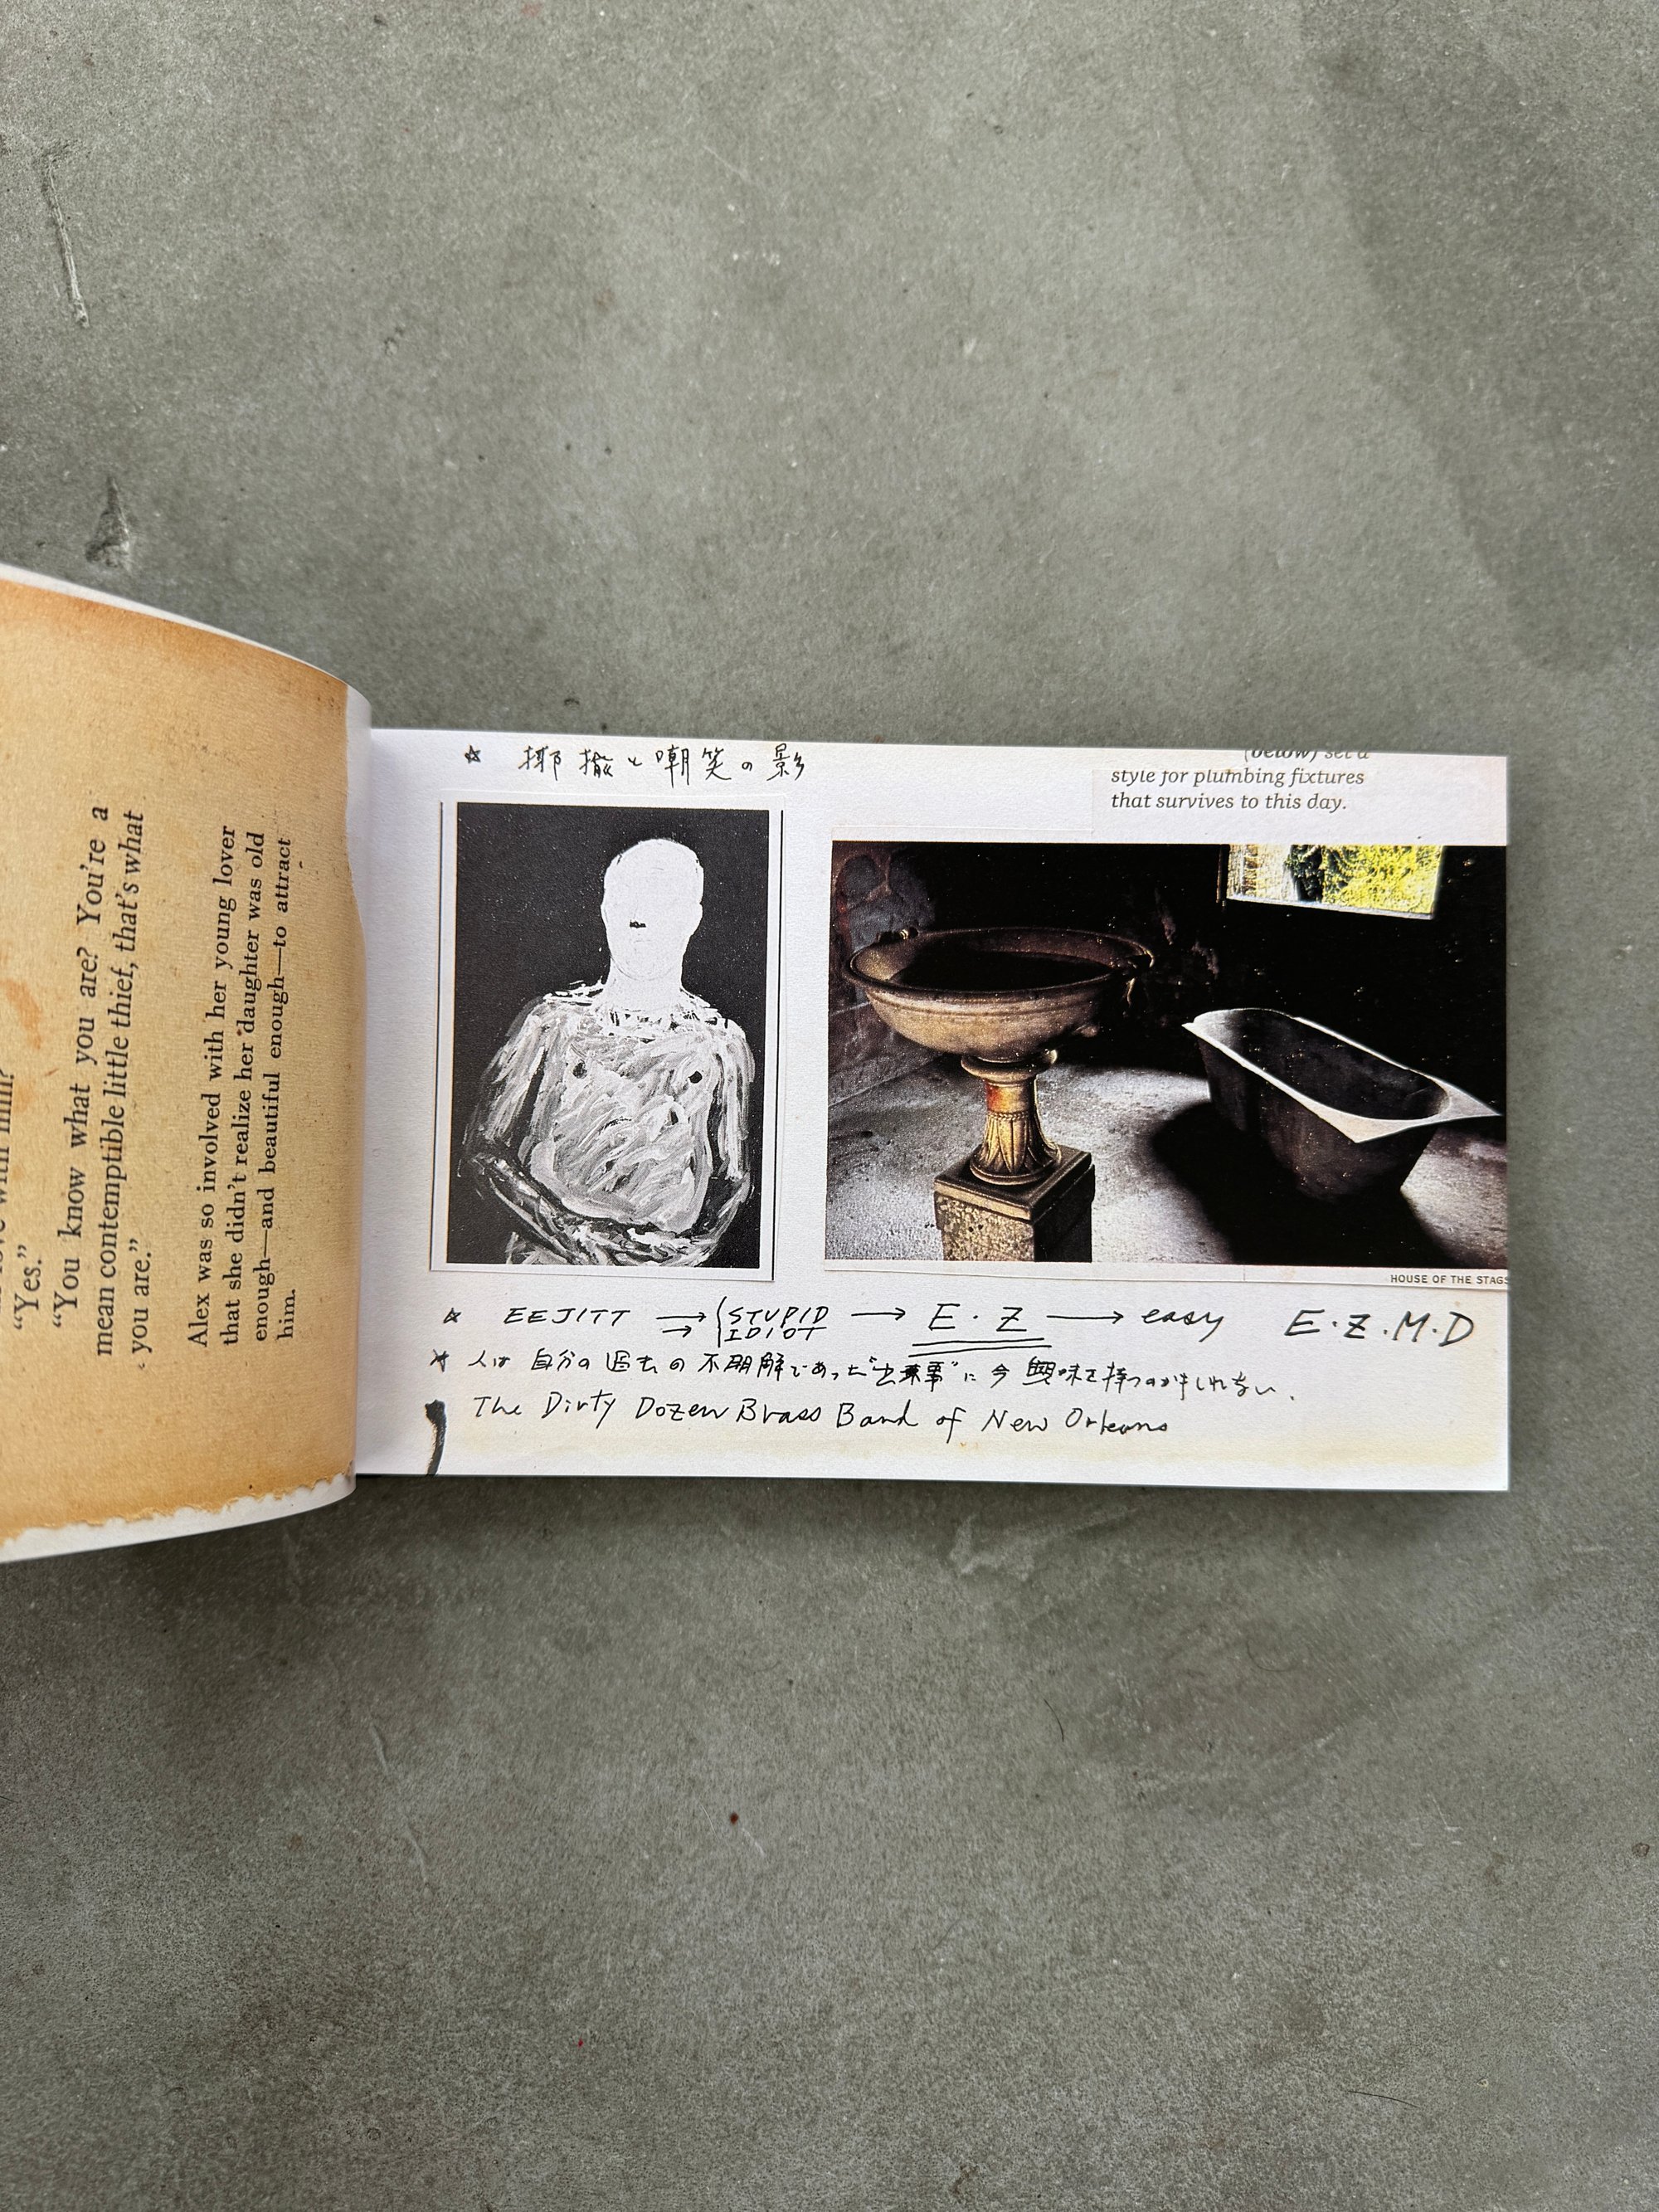 “Yes.”
“You know what you are? You’re a
mean contemptible little thief, that’s what
you are.”
Alex was so involved with her young lover
that she didn’t realize her daughter was old
enough—and beautiful enough—to attract
him.
☆ 揶揄と嘲笑の影
(below) set a
style for plumbing fixtures
that survives to this day.
HOUSE OF THE STAGS
☆ EEJITT →→ (STUPID IDIOT → E・Z → easy E.Z.M.D
☆ 人は自分の過去の不明解であった“出来事”に今興味を持つのかもしれない.
The Dirty Dozen Brass Band of New Orleans